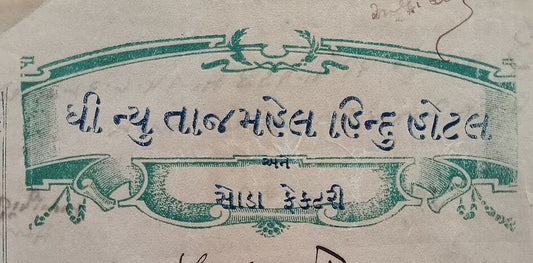 ધી ન્યુ તાજમહેલ હિન્દુ હોટલ
અને
સોડા ફેક્ટરી